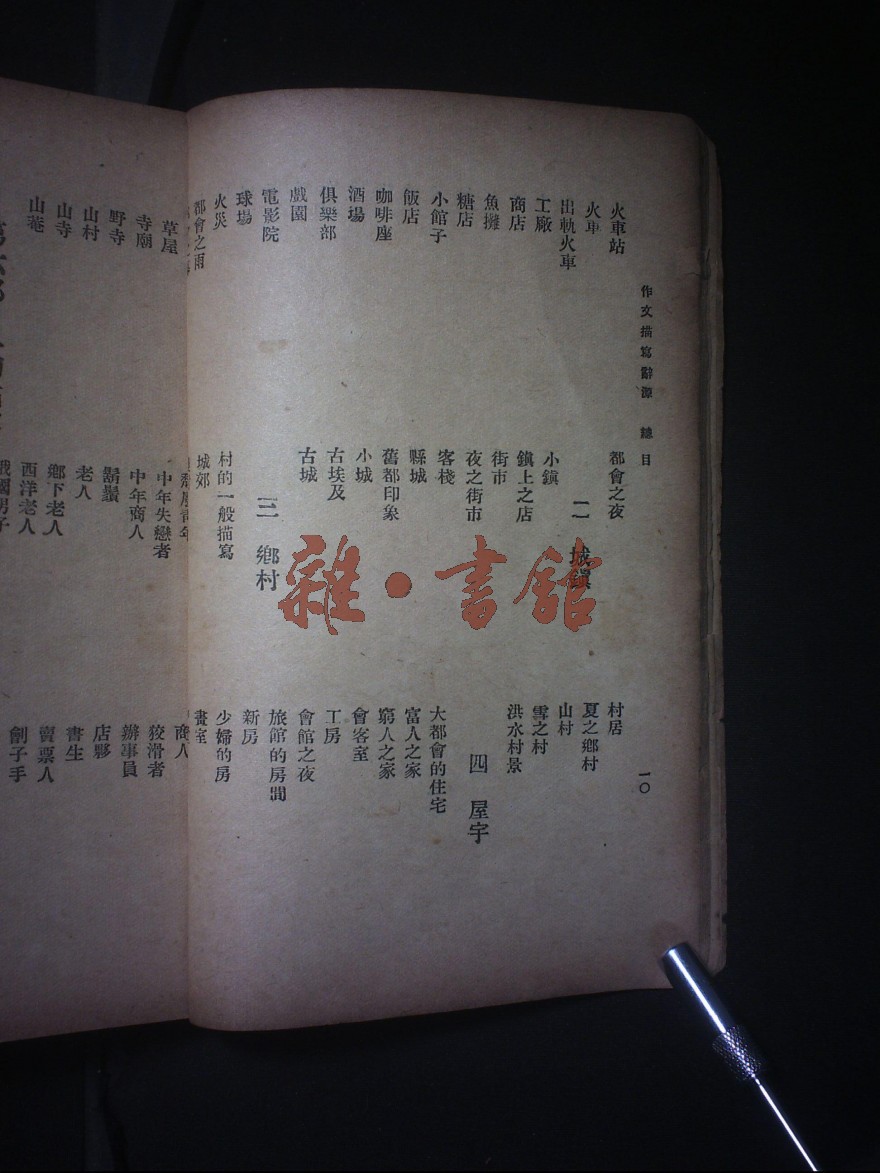 作文描寫辭源 總目
一〇
火車站
火車
出軌火車
工廠
商店
魚攤
糖店
小館子
飯店
咖啡座
酒場
俱樂部
戲園
電影院
球場
火災
都會之雨
都會之夜
二 城鎮
小鎮
鎮上之店
街市
夜之街市
客棧
縣城
舊都印象
小城
古埃及
古城
三 鄉村
村的一般描寫
城郊
村居
夏之鄉村
山村
雪之村
洪水村景
四 屋宇
大都會的住宅
富人之家
窮人之家
會客室
工房
會館之夜
旅館的房間
新房
少婦的房
畫室
草屋
寺廟
野寺
山村
山寺
山菴
中年失戀者
中年商人
鬍鬚
老人
鄉下老人
西洋老人
俄國男子
商人
狡滑者
辦事員
店夥
書生
賣票人
劊子手
雜·書館